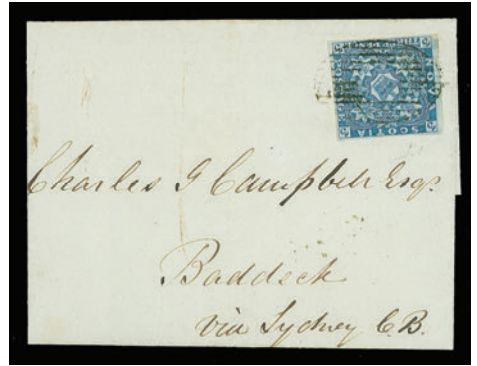 SCOTIA
Charles J Campbell Esqr.
Baddeck
via Sydney C.B.